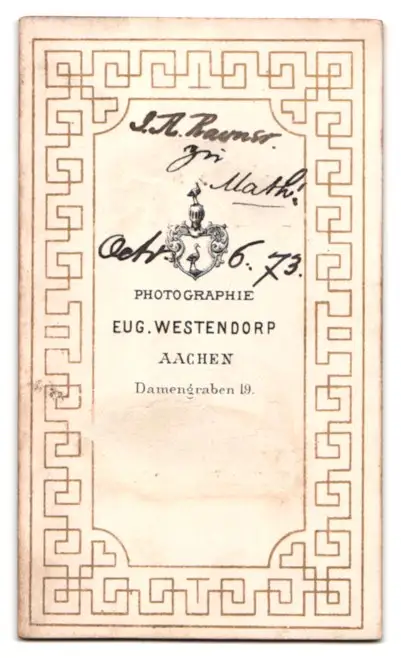 J. A.
Math!
Octr. 6. 73.
PHOTOGRAPHIE
EUG. WESTENDORP
AACHEN
Damengraben 19.